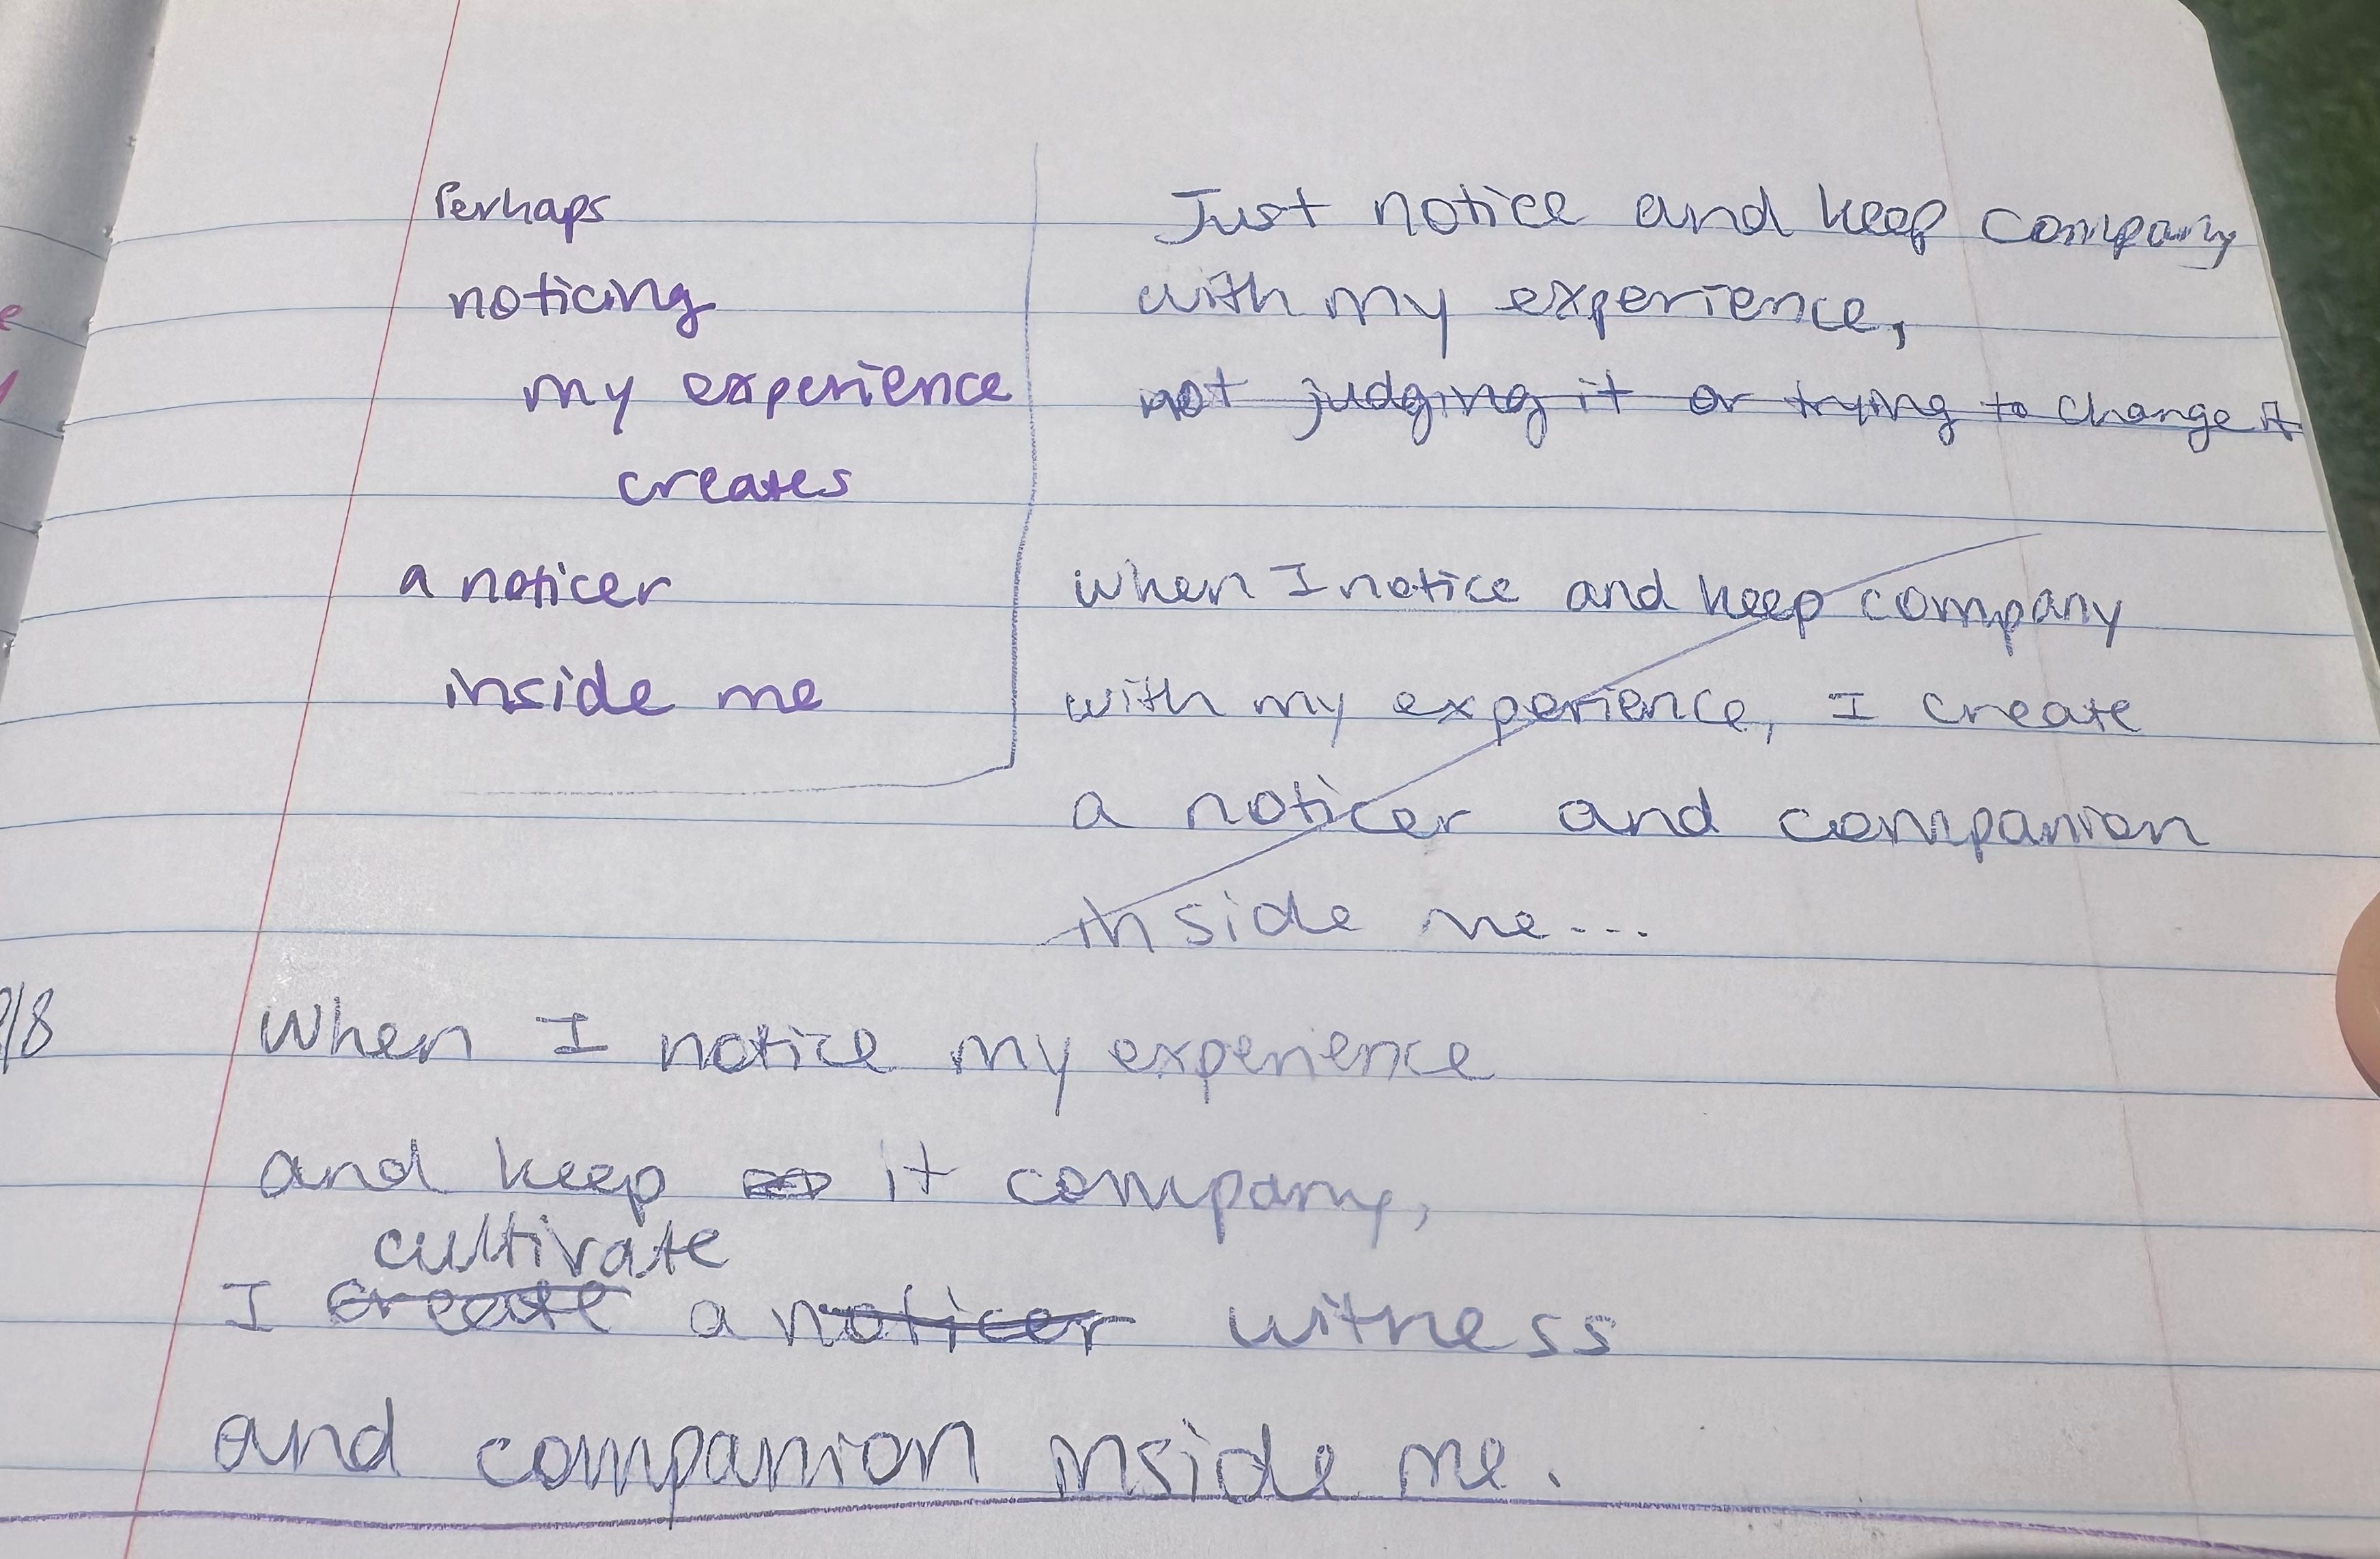 Perhaps
noticing
my experience
creates
a noticer
inside me
Just notice and keep company
with my experience,
not judging it or trying to change it
when I notice and keep company
with my experience, I create
a noticer and companion
inside me...
When I notice my experience
and keep it company,
cultivate
I create a noticer witness
and companion inside me.